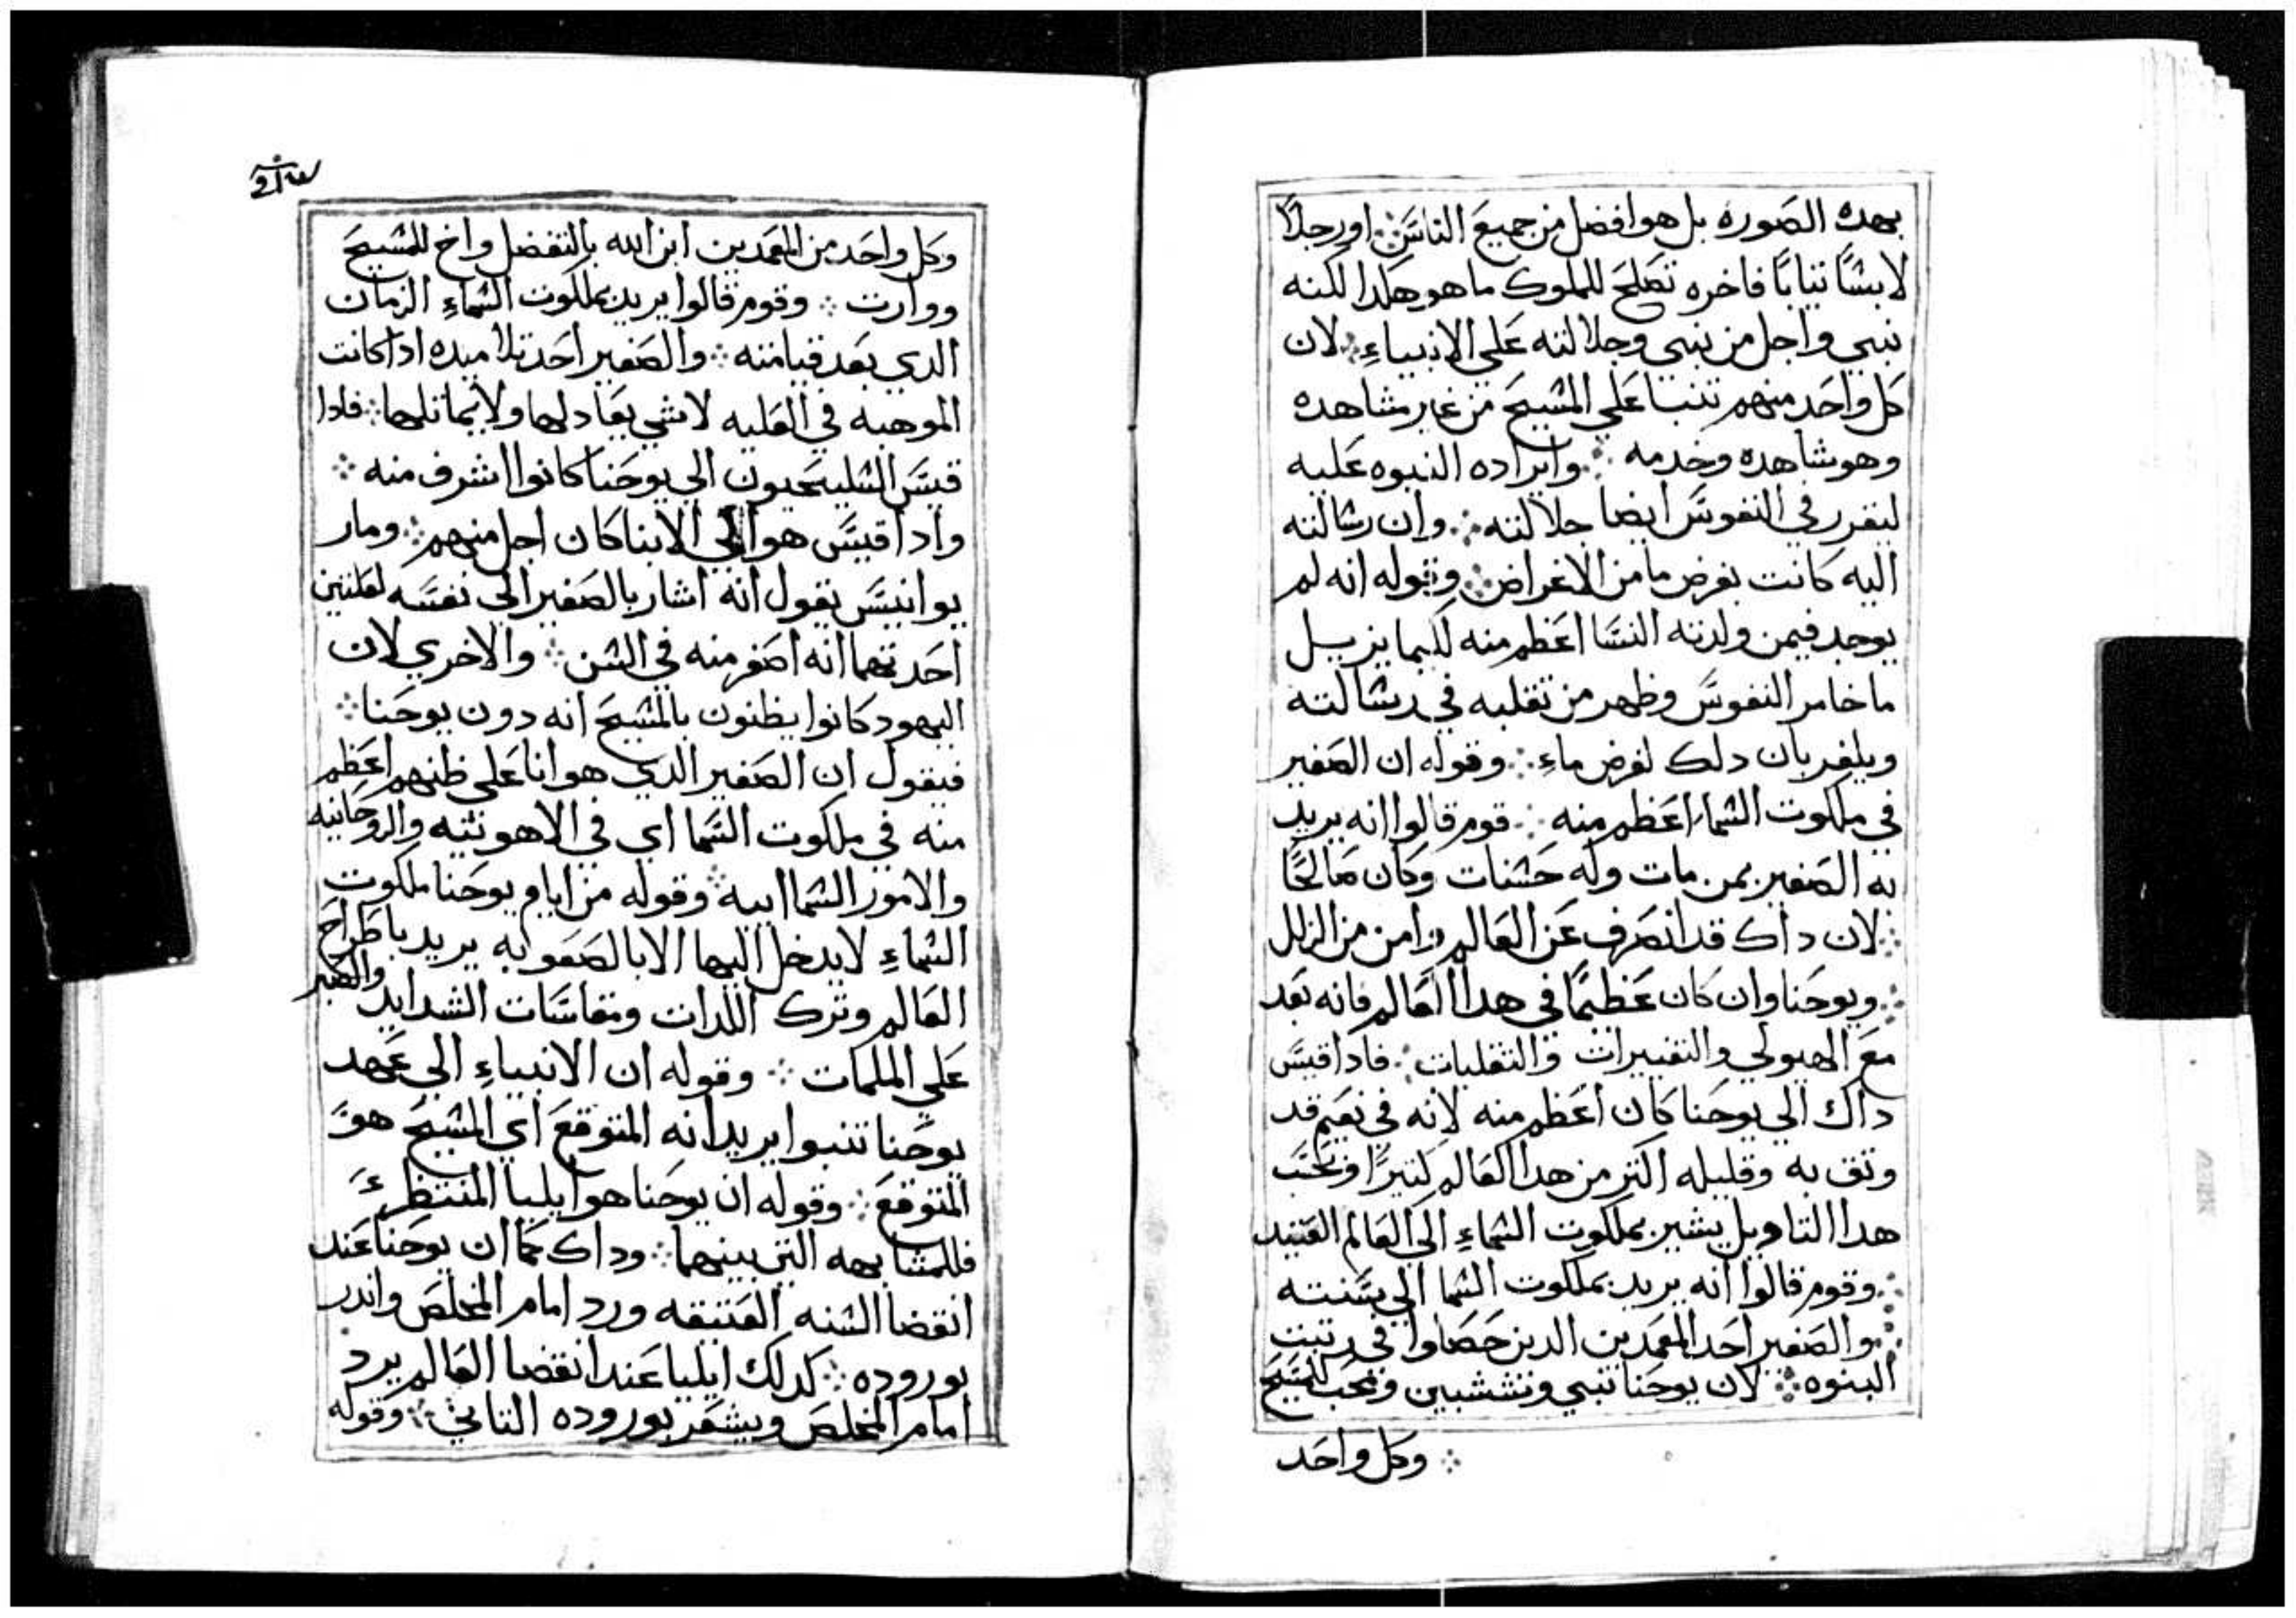 بهده الصوره بل هو افضل من جميع الناس ∴ او رجلاً
لابسًا تيابًا فاخره تصلح للملوك ما هو هكدا لكنه
نبي واجل من نبي وجلالته علي الانبياءِ ∴ لان
كل واحد منهم تنبا علي المسيح من غير مشاهده
وهو شاهده وخدمه ∴ وايراده النبوه عليه
ليقرر في النفوس ايضا جلالته ∴ وان رسالته
اليه كانت بغرض ما من الاغراض ∴ وقوله انه لم
يوجد فيمن ولدته النسا اعظم منه لكيما يزيل
ما خامر النفوس وظهر من تقلبه في رسالته
ويلغر بان دلك لغرض ماءِ ∴ وقوله ان الصغير
في ملكوت السماء اعظم منه ∴ قوم قالوا انه يريد
به الصغير بمن مات وله حسنات وكان صالحًا
∴ لان داك قد انصرف عن العالم وامن من الزلل
∴ ويوحنا وان كان عظيمًا في هدا العالم فانه بعد
مع الهيولي والتغييرات والتقلبات ∴ فادا قيس
داك الي يوحنا كان اعظم منه لانه في نعيم قد
وتق به وقليله اكتر من هدا العالم كتيرًا وبحسب
هدا التاويل يشير بملكوت السماءِ الي العالم العتيد
∴ وقوم قالوا انه يريد بملكوت السما الي سنته
∴ والصغير احد المعمدين الدين حصلوا في رتبت
البنوه ∴ لان يوحنا نبي ونششبين ومحب للمسيح
∴ وكل واحد
وكل واحد من المعمدين ابن الله بالتفضل واخ للمسيح
ووارت ∴ وقوم قالوا يريد بملكوت السماءِ الزمان
الدي بعد قيامته ∴ والصغير احد تلاميده ادا كانت
الموهبه في العليه لا شي يعادلها ولا يماتلها ∴ فادا
قيس السليحيون الي يوحنا كانوا اشرف منه ∴
وادا قيس هو الي الانبيا كان اجل منهم ∴ ومار
يوانيس يقول انه اشار بالصغير الي نفسه لعلتين
احدتهما انه اصغر منه في السن ∴ والاخري لان
اليهود كانوا يظنون بالمسيح انه دون يوحنا ∴
فيقول ان الصغير الدي هو انا علي ظنهم اعظم
منه في ملكوت السما اي في الاهوتيه والروحانيه
والامور السماييه ∴ وقوله من ايام يوحنا ملكوت
السماءِ لا يدخل اليها الا بالصعوبه يريد باطراح
العالم وترك اللدات ومقاسات الشدايد والصبر
علي الملمات ∴ وقوله ان الانبياءِ الي عهد
يوحنا تنبوا يريد انه المتوقع اي المسيح هو
المتوقع ∴ وقوله ان يوحنا هو ايليا المنتظر
فللمشابهه التي بينهما ∴ وداك كما ان يوحنا عند
انقضا السنه العتيقه ورد امام المخلص واندر
بوروده ∴ كدلك ايليا عند انقضا العالم يرد
امام المخلص ويشعر بوروده التاني ∴ وقوله